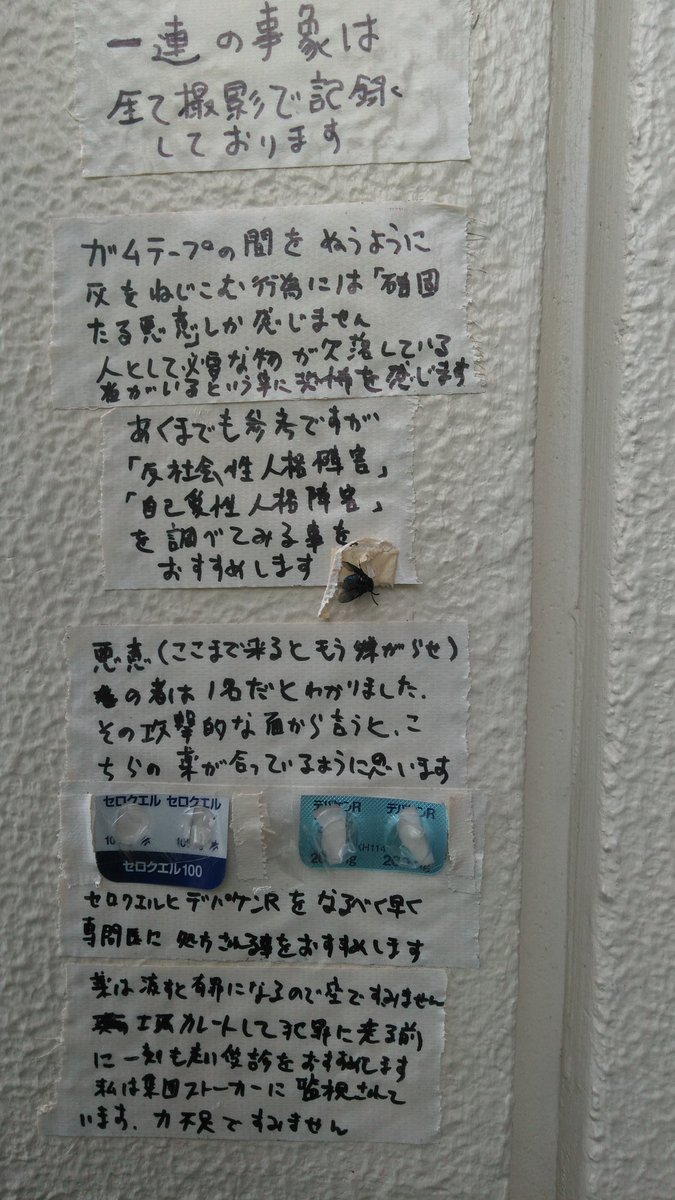 一連の事象は
全て撮影で記録
しております
ガムテープの間をぬうように
灰をねじこむ行為には「確固
たる悪意」しか感じません
人として必要な物が欠落している
者がいるという事に恐怖を感じます
あくまでも参考ですが
「反社会性人格障害」
「自己愛性人格障害」
を調べてみる事を
おすすめします
悪意(ここまで来るともう嫌がらせ)
の者は1名だとわかりました.
その攻撃的な面から言うと、こ
ちらの薬が合っているように思います
セロクエル セロクエル
セロクエル100
デパケンR デパケンR
KH114
セロクエルとデパケンRをなるべく早く
専門医に処方される事をおすすめします
薬は渡すと有罪になるので空ですみません
エスカレートして犯罪に走る前
に一刻も早い受診をおすすめします
私は集団ストーカーに監視されて
います.力不足ですみません